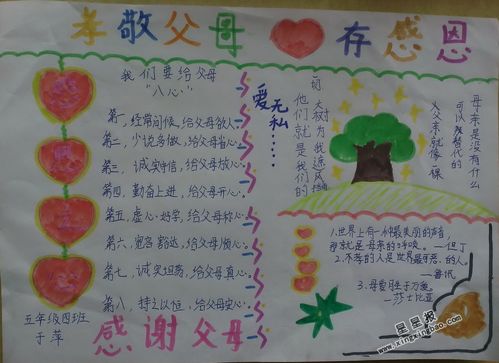 孝敬父母 存感恩
我们要给父母
"八心"
第一,经常问候,给父母欢心。
第二,少说多做,给父母省心。
第三,诚实守信,给父母放心。
第四,勤奋上进,给父母开心。
第五,虚心好学,给父母称心。
第六,宽容豁达,给父母顺心。
第七,诚实坦荡,给父母真心。
第八,持之以恒,给父母安心。
感谢父母
五年级四班
于萍
爱无私……
大树为我遮风挡
他们就是我们的
母亲是没有什么
可以代替的
父亲就像一棵
1.世界上有一种最美丽的声音,
那就是母亲的呼唤。—但丁
2.不孝的人是世界最可恶的人。
—鲁讯
3.母爱胜于万爱。
—莎士比亚
星星报
www.xingxingbao.com